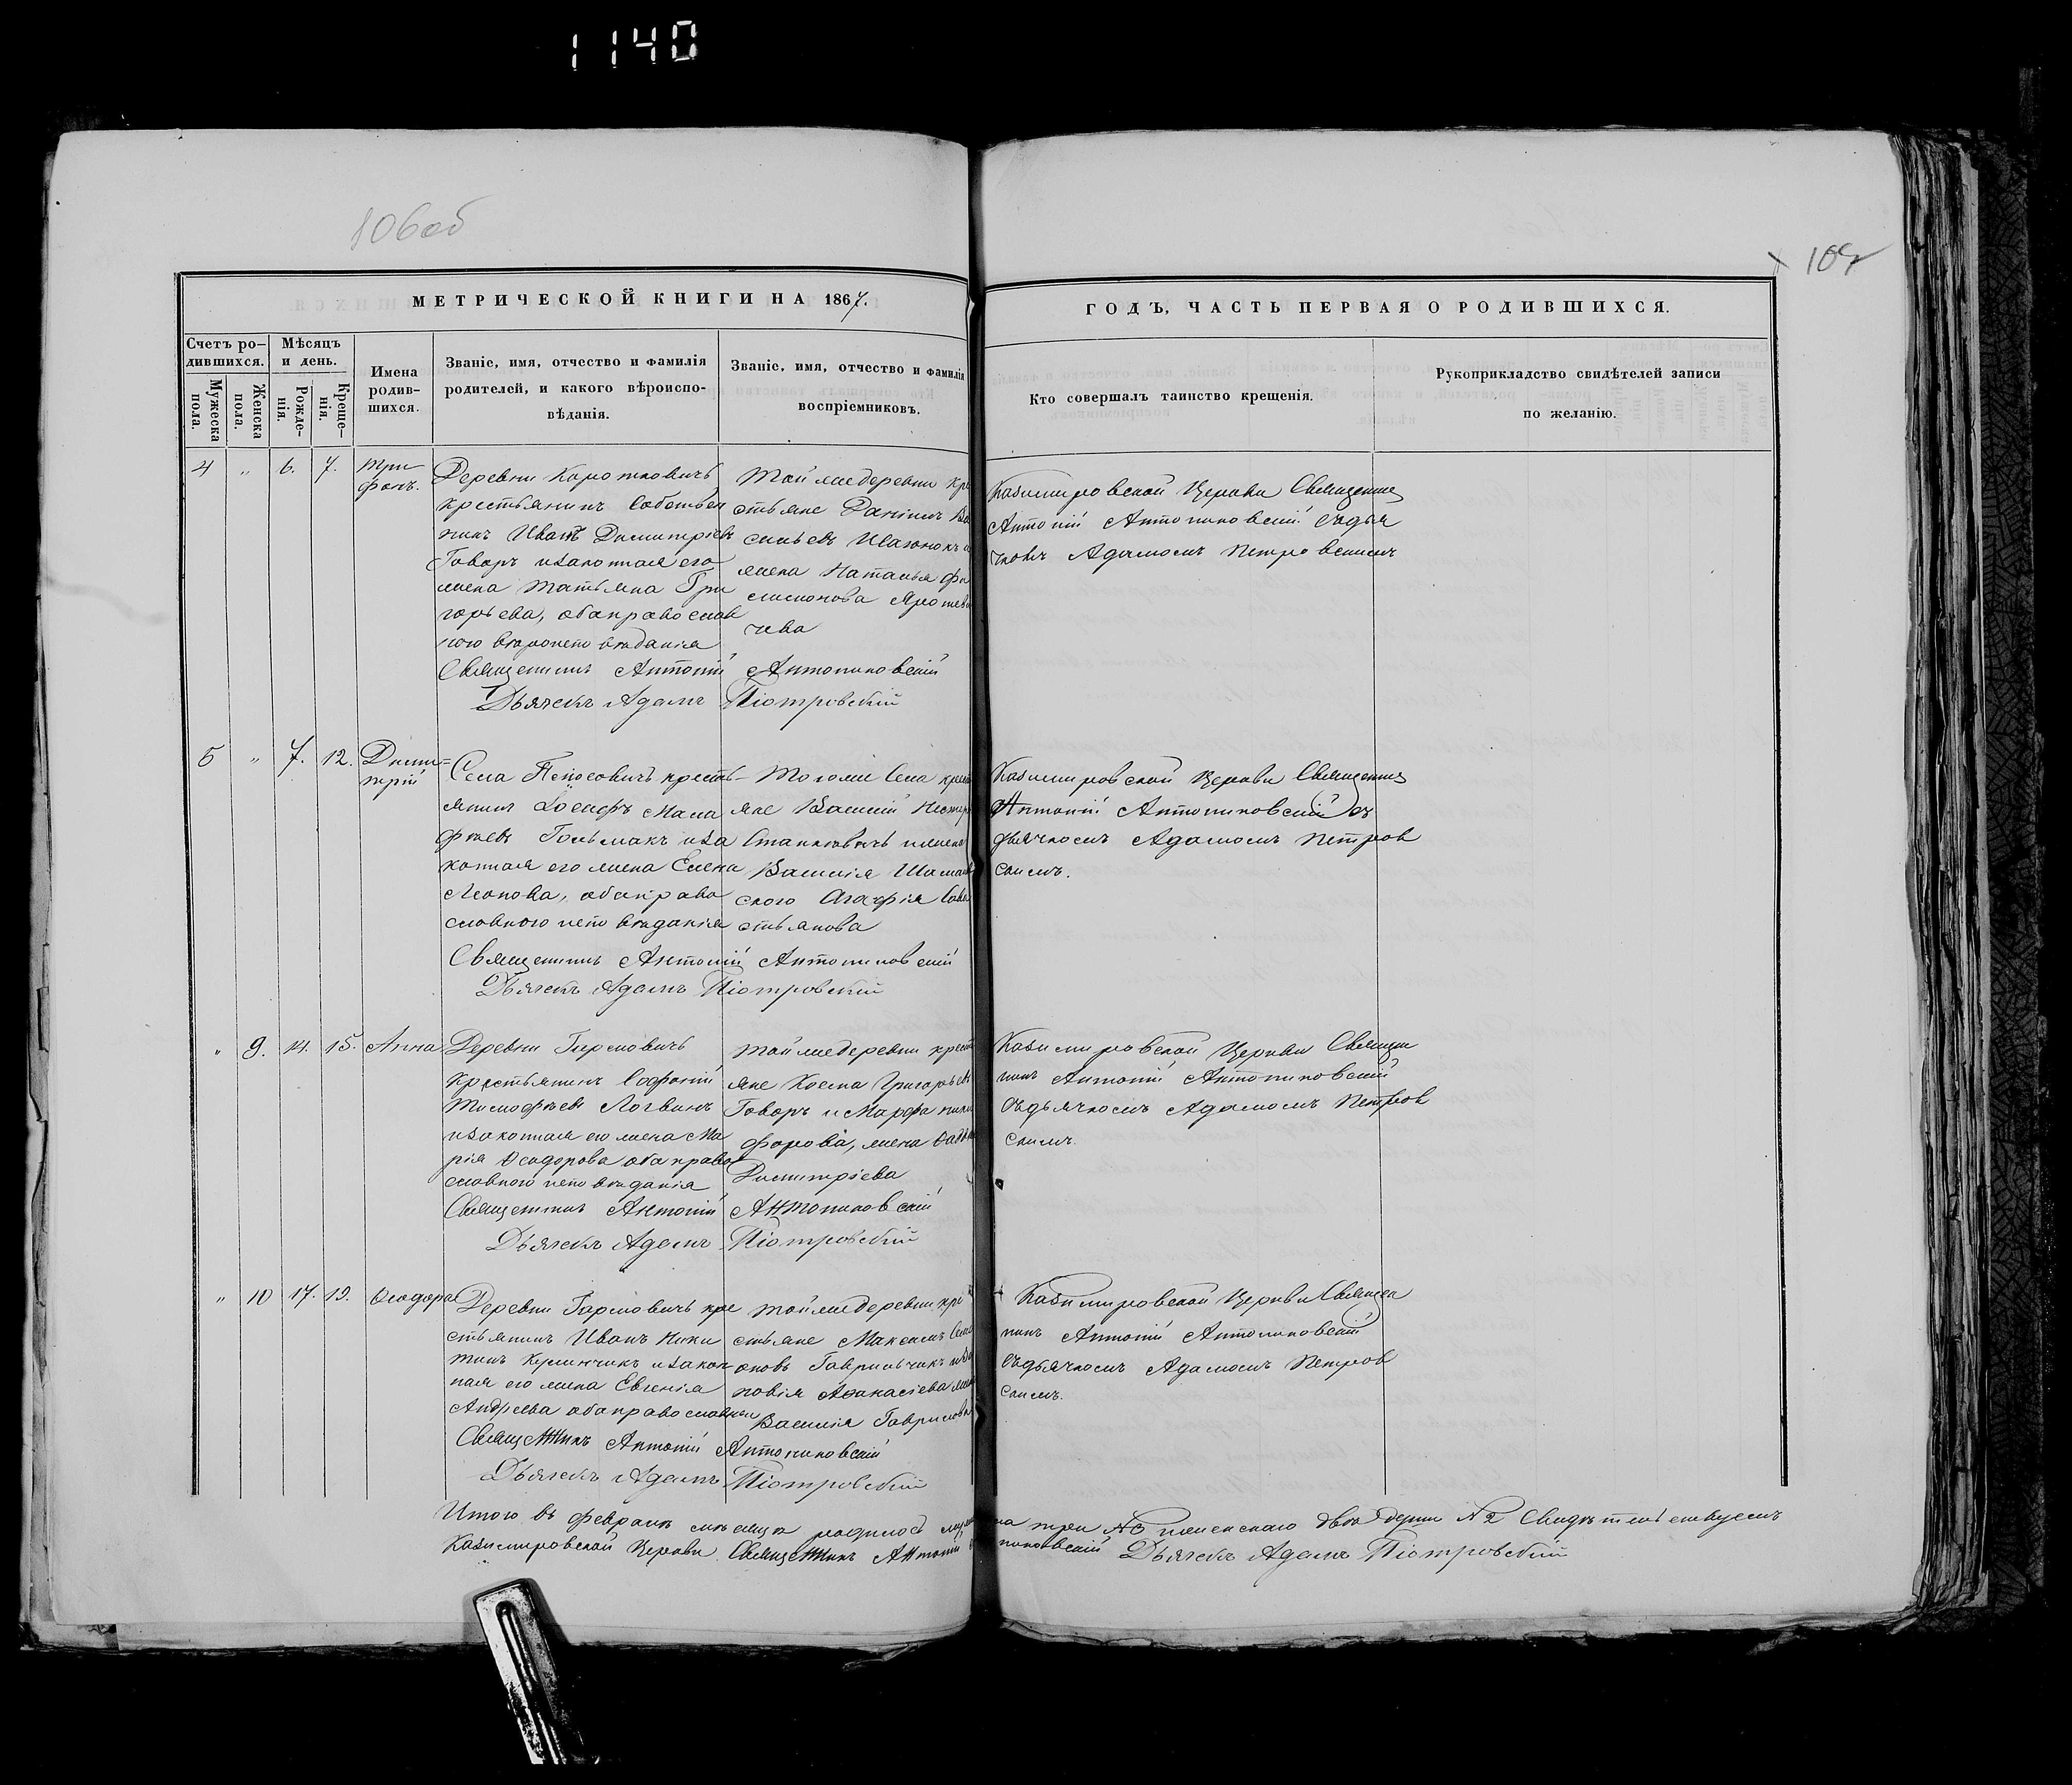 1140
106об
107
МЕТРИЧЕСКОЙ КНИГИ НА 1867.
ГОДЪ, ЧАСТЬ ПЕРВАЯ О РОДИВШИХСЯ.
Счетъ ро-
дившихся.
Мужеска
пола.
Женска
пола.
Мѣсяцъ
и день.
Рожде-
нія.
Креще-
нія.
Имена
родив-
шихся.
Званіе, имя, отчество и фамилія
родителей, и какого вѣроиспо-
вѣданія.
Званіе, имя, отчество и фамилія
воспріемниковъ.
Кто совершалъ таинство крещенія.
Рукоприкладство свидѣтелей записи
по желанію.
4 " 6. 7.
Три-
фонъ.
Деревни Коротковичъ
крестьянинъ Собствен
никъ Иванъ Димитріевъ
Говоръ изаконная его
жена Татьяна Гри
горьева, оба православ
ного
Священникъ Антоній Антониковскій
Дьячекъ Адамъ Піотровскій
Той же деревни кре
стьяне Даніилъ Ва
сильевъ
жена Наталья Фи
лимонова
чева
Казимировской Церкви Священник
Антоній Антониковскій съ дья
чкомъ Адамомъ Петровскимъ
5 " 7. 12.
Дими=
трій
Села кресть-
янинъ Іосифъ Мала
фѣевъ Гольмакъ иза
конная его жена Елена
Леонова, оба право
славного исповѣданія
Священникъ Антоній Антониковскій
Дьячекъ Адамъ Піотровскій
Того же Села кресть
яне Василій Нестер
Станкевичъ и жена
Василія
ского Агафія Сава
стьянова
Казимировской Церкви Священник
Антоній Антониковскій съ
дьячкомъ Адамомъ Петров
скимъ.
" 9. 14. 15. Анна
Деревни Гармовичъ
Крестьянинъ Софоній
Тимофѣевъ Логвинъ
изаконная его жена Ма
рія Ѳеодорова оба право
славного исповѣданія
Священникъ Антоній Антониковскій
Дьячекъ Адамъ Піотровскій
Той же деревни кресть
яне Косма Григорьевъ
Говоръ и Марфа Ники
форова, жена
Димитріева
Казимировской Церкви Священ
никъ Антоній Антониковскій
Съдьячкомъ Адамомъ Петров
скимъ.
" 10 17. 19. Ѳеодора
Деревни Гармовичъ кре
стьянинъ Иванъ Ники
тинъ изакон
ная его жена Евгенія
Андреева оба православн
Священникъ Антоній Антониковскій
Дьячекъ Адамъ Піотровскій
Той же деревни кре
стьяне Максимъ Сем
оновъ Гаврильчикъ
Аѳанасіева жена
Василія Гаврилова
Казимировской Церкви Священ
никъ Антоній Антониковскій
Съдьячкомъ Адамомъ Петров
скимъ.
Итого въ февралѣ мѣсяцѣ родилось три №3 женскаго двѣ №2 Свидѣтельствуемъ
Казимировской Церкви Священникъ Антоній Антониковскій Дьячекъ Адамъ Піотровскій